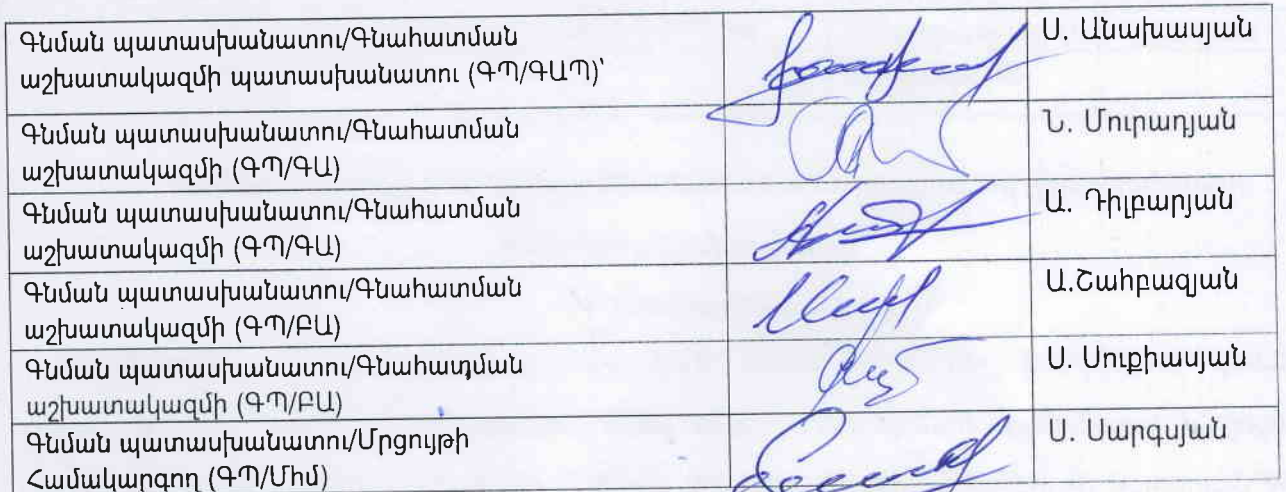 Գնման պատասխանատու/Գնահատման
աշխատակազմի պատասխանատու (ԳՊ/ԳԱՊ)՝
Ս. Անախասյան
Գնման պատասխանատու/Գնահատման
աշխատակազմի (ԳՊ/ԳԱ)
Ն. Մուրադյան
Գնման պատասխանատու/Գնահատման
աշխատակազմի (ԳՊ/ԳԱ)
Ա. Դիլբարյան
Գնման պատասխանատու/Գնահատման
աշխատակազմի (ԳՊ/ԲԱ)
Ա.Շահբազյան
Գնման պատասխանատու/Գնահատման
աշխատակազմի (ԳՊ/ԲԱ)
Ս. Սուքիասյան
Գնման պատասխանատու/Մրցույթի
Համակարգող (ԳՊ/Միմ)
Ս. Սարգսյան